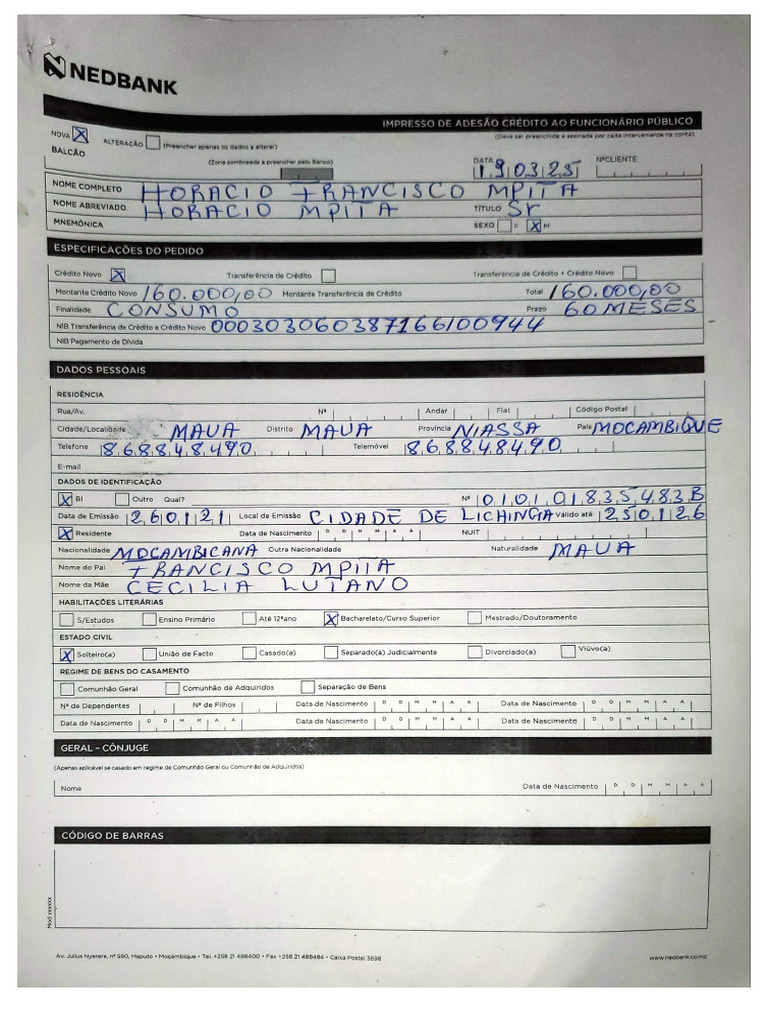 NEDBANK
IMPRESSO DE ADESÃO CRÉDITO AO FUNCIONÁRIO PÚBLICO
(Deve ser preenchido e assinado por cada interveniente na conta)
NOVA X ALTERAÇÃO (Preencher apenas os dados a alterar)
BALCÃO (Zona sombreada a preencher pelo Banco) DATA 190325 NºCLIENTE
NOME COMPLETO HORACIO FRANCISCO MPITA
NOME ABREVIADO HORACIO MPITA TÍTULO Sr
MNEMÓNICA SEXO F X M
ESPECIFICAÇÕES DO PEDIDO
Crédito Novo X Transferência de Crédito Transferência de Crédito + Crédito Novo
Montante Crédito Novo 160.000,00 Montante Transferência de Crédito Total 160.000,00
Finalidade CONSUMO Prazo 60 MESES
NIB Transferência de Crédito e Crédito Novo 000303060387166100944
NIB Pagamento de Dívida
DADOS PESSOAIS
RESIDÊNCIA
Rua/Av. Nº Andar Flat Código Postal
Cidade/Localidade MAUA Distrito MAUA Província NIASSA País MOCAMBIQUE
Telefone 868848490 Telemóvel 868848490
E-mail
DADOS DE IDENTIFICAÇÃO
X BI Outro Qual? Nº 010101835483B
Data de Emissão 260121 Local de Emissão CIDADE DE LICHINGA Válido até 250126
X Residente Data de Nascimento D D M M A A NUIT
Nacionalidade MOCAMBICANA Outra Nacionalidade Naturalidade MAUA
Nome do Pai FRANCISCO MPITA
Nome da Mãe CECILIA LUTANO
HABILITAÇÕES LITERÁRIAS
S/Estudos Ensino Primário Até 12ºano X Bacharelato/Curso Superior Mestrado/Doutoramento
ESTADO CIVIL
X Solteiro(a) União de Facto Casado(a) Separado(a) Judicialmente Divorciado(a) Viúvo(a)
REGIME DE BENS DO CASAMENTO
Comunhão Geral Comunhão de Adquiridos Separação de Bens
Nº de Dependentes Nº de Filhos Data de Nascimento D D M M A A Data de Nascimento D D M M A A
Data de Nascimento D D M M A A Data de Nascimento D D M M A A Data de Nascimento D D M M A A
GERAL – CÔNJUGE
(Apenas aplicável se casado em regime de Comunhão Geral ou Comunhão de Adquiridos)
Nome Data de Nascimento D D M M A A
CÓDIGO DE BARRAS
Mod xxxxxx
Av. Julius Nyerere, nº 590, Maputo • Moçambique • Tel. +258 21 488400 • Fax +258 21 488484 • Caixa Postal 3698 www.nedbank.co.mz